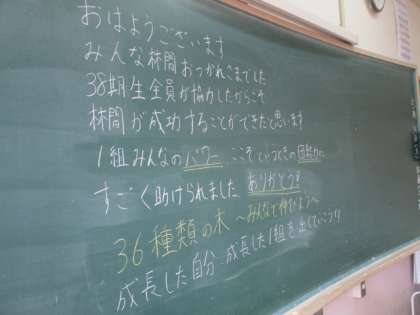 おはようございます
みんな林間おつかれさまでした
38期生全員が協力したからこそ
林間が成功することができたと思います
1組みんなのパワー、ここぞというときの団結力に
すごく助けられました ありがとう!!
36種類の木 〜みんなで伸びよう〜
成長した自分 成長した1組を出していこう!!